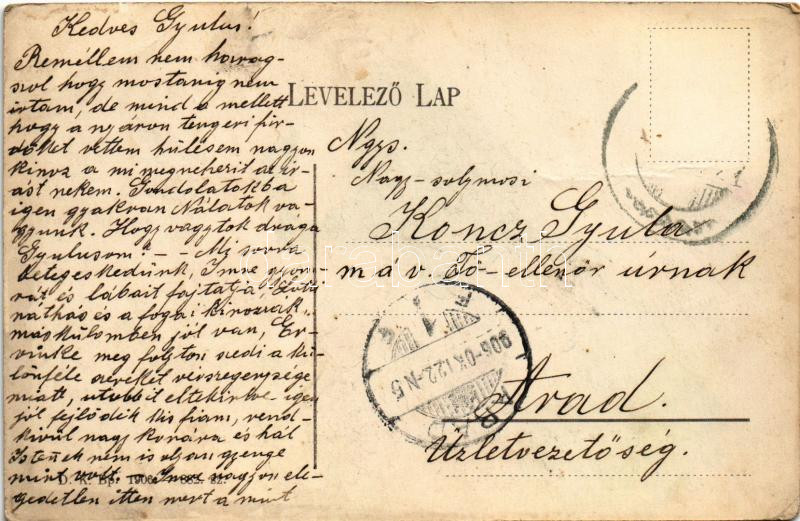 Kedves Gyulus!
Reméllem nem harag-
szol hogy mostanig nem
irtam, de mind a mellett
hogy a nyáron tengeri für-
dőket vettem hülésem nagyon
kinoz a mi megneheziti az ir-
ást nekem. Gondolatokba
igen gyakran Nálatok va-
gyunk. Hogy vagytok drága
Gyulusom? - - Mi sorra
betegeskedünk, Imre gyom-
rát és lábait fájtatja,
náthás és a fogai kinozzák
máskülömben jól van, Er-
vinke meg folyton szedi a kü-
lönféle szereket vérszegénysége
miatt, utóbbit eltekintve igen
jól fejlődik kis fiam, rend-
kivül nagy korára és hál
Istennek nem is olyan gyenge
mint volt. Imre nagyon ele-
gedetlen itten mert a mint
D. K. Bp. 1906
LEVELEZŐ LAP
Ngys.
Nagy-solymosi
Koncz Gyula
máv. Fő-ellenőr úrnak
Arad.
Üzletvezetőség.
ARAD
906 OKT. 22-N5
darabanth